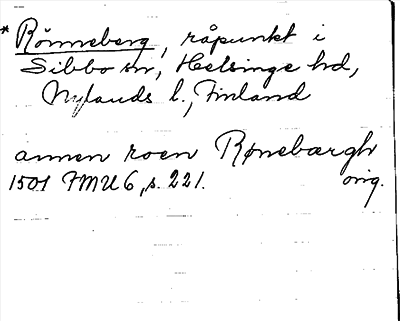 * Rönneberg, råpunkt i
Sibbo sn, Helsinge hd,
Nylands l., Finland
annen roen Rønebærgh
1501 FMU 6, s. 221. orig.